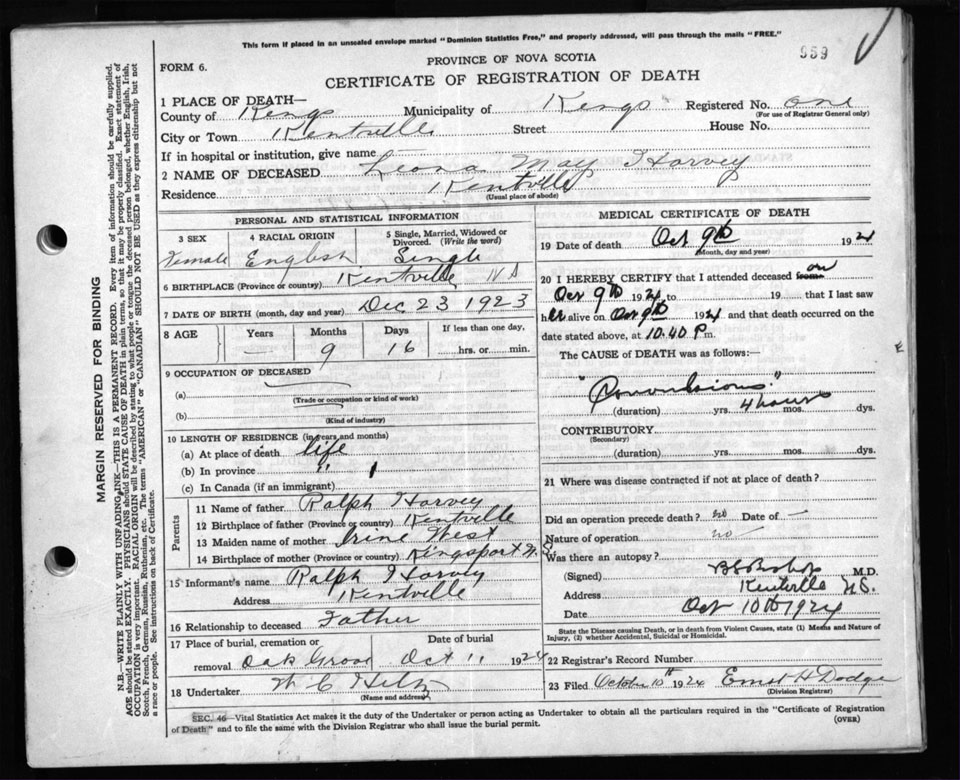 This form if placed in an unsealed envelope marked "Dominion Statistics Free," and properly addressed, will pass through the mails "FREE."
959
FORM 6.
PROVINCE OF NOVA SCOTIA
CERTIFICATE OF REGISTRATION OF DEATH
1 PLACE OF DEATH—
County of Kings Municipality of Kings Registered No. one
(For use of Registrar General only)
City or Town Kentville Street House No.
If in hospital or institution, give name
2 NAME OF DECEASED Leona May Harvey
Residence Kentville
(Usual place of abode)
PERSONAL AND STATISTICAL INFORMATION
3 SEX 4 RACIAL ORIGIN 5 Single, Married, Widowed or Divorced. (Write the word)
Female English Single
6 BIRTHPLACE (Province or country) Kentville N S
7 DATE OF BIRTH (month, day and year) Dec 23 1923
8 AGE Years Months Days If less than one day,
— 9 16 hrs. or min.
9 OCCUPATION OF DECEASED
(a)
(Trade or occupation or kind of work)
(b)
(Kind of industry)
10 LENGTH OF RESIDENCE (in years and months)
(a) At place of death life
(b) In province "
(c) In Canada (if an immigrant)
Parents
11 Name of father Ralph Harvey
12 Birthplace of father (Province or country) Kentville
13 Maiden name of mother Irine West
14 Birthplace of mother (Province or country) Kingsport N. S.
15 Informant's name Ralph Harvey
Address Kentville
16 Relationship to deceased Father
17 Place of burial, cremation or Date of burial
removal Oak Grove Oct 11 1924
18 Undertaker W C Hiltz
(Name and address)
MEDICAL CERTIFICATE OF DEATH
19 Date of death Oct 9th 1924
(Month, day and year)
20 I HEREBY CERTIFY that I attended deceased from on
Oct 9th 1924 to 19 that I last saw
her alive on Oct 9th 1924 and that death occurred on the
date stated above, at 10.40 P. m.
The CAUSE of DEATH was as follows:—
"Convulsions."
(duration) yrs. 4 hours mos. dys.
CONTRIBUTORY
(Secondary)
(duration) yrs. mos. dys.
21 Where was disease contracted if not at place of death?
Did an operation precede death? no Date of —
Nature of operation no
Was there an autopsy?
(Signed) Bishop M.D.
Address Kentville N.S.
Date Oct 10th 1924
State the Disease causing Death, or in death from Violent Causes, state (1) Means and Nature of Injury, (2) whether Accidental, Suicidal or Homicidal.
22 Registrar's Record Number
23 Filed October 10th 1924 Ernest H Dodge
(Division Registrar)
SEC. 46—Vital Statistics Act makes it the duty of the Undertaker or person acting as Undertaker to obtain all the particulars required in the "Certificate of Registration
of Death" and to file the same with the Division Registrar who shall issue the burial permit. (OVER)
MARGIN RESERVED FOR BINDING
N.B.—WRITE PLAINLY WITH UNFADING INK—THIS IS A PERMANENT RECORD. Every item of information should be carefully supplied.
AGE should be stated EXACTLY. PHYSICIANS should STATE CAUSE OF DEATH in plain terms, so that it may be properly classified. Exact statement of
OCCUPATION is very important. RACIAL ORIGIN will be described by stating to what people or tongue the deceased person belonged, whether English, Irish,
Scotch, French, German, Russian, Ruthenian, etc. The terms "AMERICAN" or "CANADIAN" SHOULD NOT BE USED as they express citizenship but not
a race or people. See instructions on back of Certificate.